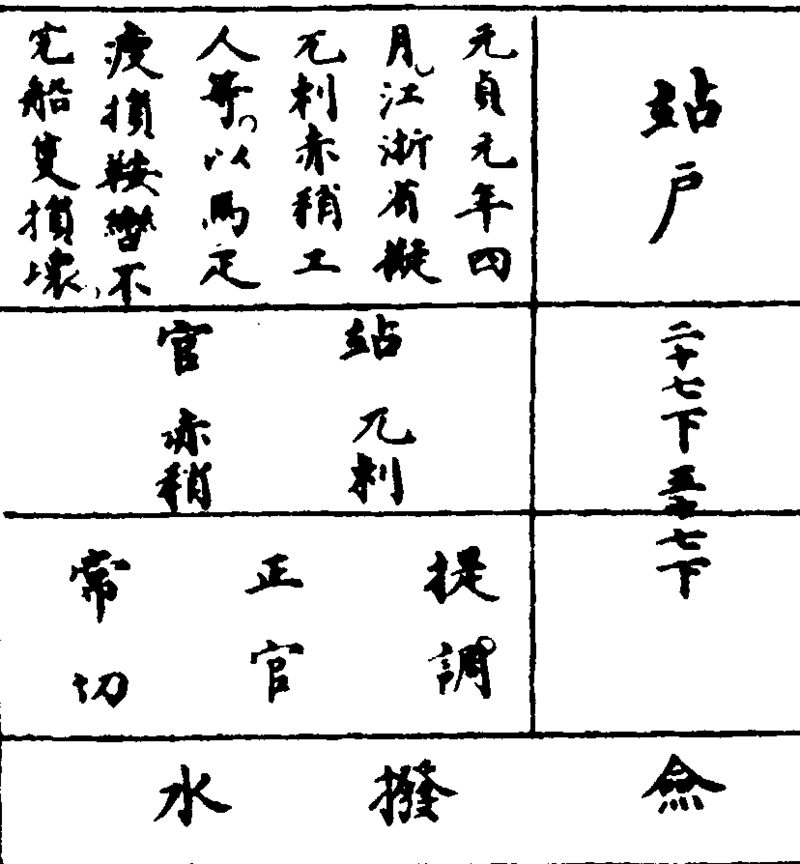 站户
二十七下五十七下
元貞元年四
月江浙省擬
兀剌赤稍工
人等以馬疋
瘦損鞍轡不
完船隻損壞
站兀剌
官赤稍
提調
正官
常切
僉撥水